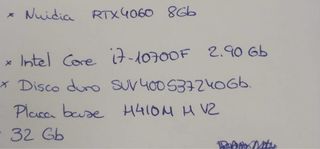 * Nuidia RTX4060 8Gb
* Intel Core i7-10700F 2.90 Gb
* Disco duro SUV400S37240Gb.
Placa base H410M H V2
- 32 Gb